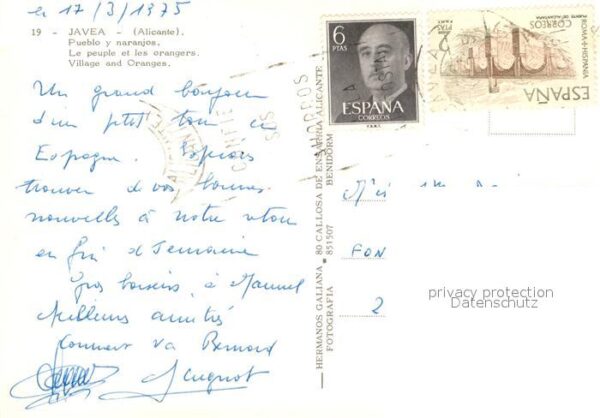 le 17/3/1975
19 - JAVEA - (Alicante).
Pueblo y naranjos.
Le peuple et les orangers.
Village and Oranges.
Un grand bonjour
d'un ptit tour en
Espagne. Espérons
trouver de vos bonnes
nouvelles à notre retour
en fin de semaine
Gros baisers à Manuel
Meilleures amitiés
Comment va Bernard
HERMANOS GALIANA • 80 CALLOSA DE ENSARRIA ALICANTE
FOTOGRAFIA 851507 BENIDORM
6
PTAS
ESPAÑA
CORREOS
F.N.M.T.
2
PTAS
CORREOS
PUENTE DE ALCANTARA
ROMA + HISPANIA
ESPAÑA
FON
2
privacy protection
Datenschutz